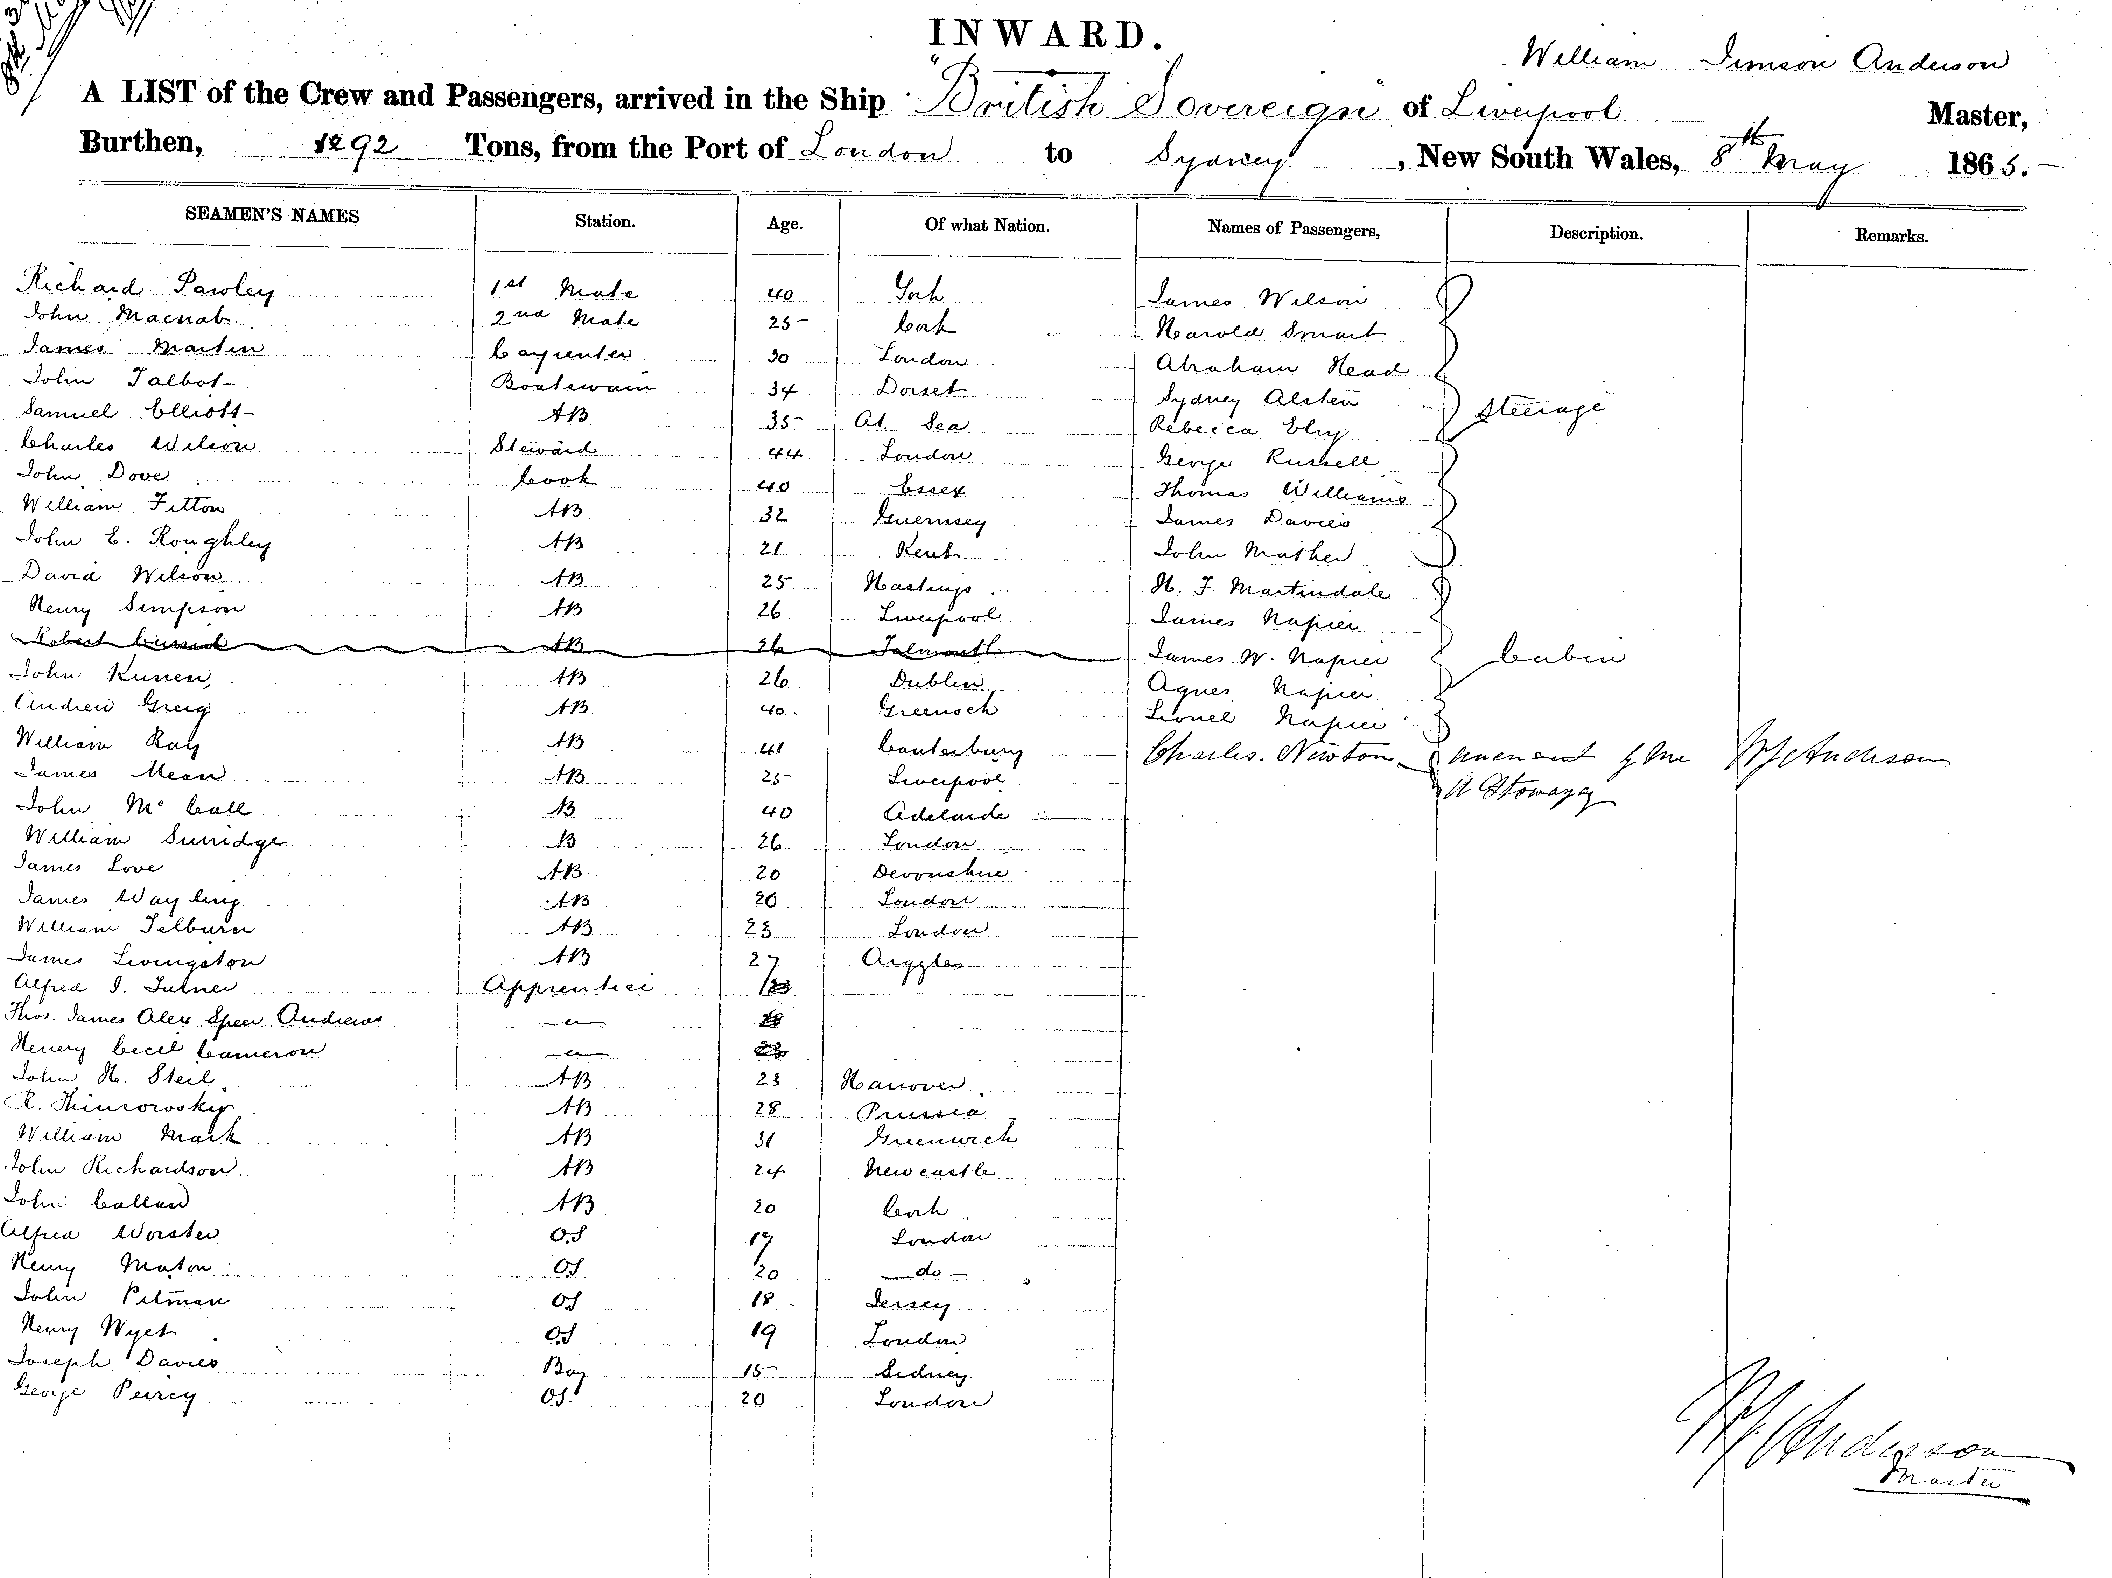 INWARD.
William Jimson Anderson
A LIST of the Crew and Passengers, arrived in the Ship "British Sovereign" of Liverpool Master,
Burthen, 1292 Tons, from the Port of London to Sydney, New South Wales, 8th May 1865.
SEAMEN'S NAMES Station. Age. Of what Nation. Names of Passengers, Description. Remarks.
Richard Pawley 1st Mate 40 York James Wilson
John Macnab 2nd Mate 25 Cork Harold Smart
James Martin Carpenter 30 London Abraham Head
John Talbot Boatswain 34 Dorset Sydney Alsten
Samuel Elliott AB 35 At Sea Rebecca Elry Steerage
Charles Wilson Steward 44 London George Russell
John Dove Cook 40 Essex Thomas Williams
William Fitton AB 32 Guernsey James Davies
John E. Roughley AB 21 Kent John Mather
David Wilson AB 25 Hastings H. F Martindale
Henry Simpson AB 26 Liverpool James Napier
Robert AB 26 Falmouth James W. Napier Cabin
John Kunen AB 26 Dublin Agnes Napier
Andrew Greig AB 40 Greenock Lionel Napier
William Ray AB 41 Canterbury Charles Newton by me WJ Anderson
James Mean AB 25 Liverpool A Stowaway
John Mc Call AB 40 Adelaide
William Surridge AB 26 London
James Love AB 20 Devonshire
James Wayling AB 20 London
William Tilburn AB 23 London
James Livingston AB 27
Alfred J. Turner Apprentice
Thos. James Alex Speer Andrews "
Henery Cecil Cameron "
John H. Steil AB 23 Hanover
R. AB 28 Prussia
William Mark AB 31 Greenwich
John Richardson AB 24 Newcastle
John Callan AB 20 Cork
Alfred Worster OS 19 London
Henry Maton OS 20 do
John Pitman OS 18 Jersey
Henry Wyet OS 19 London
Joseph Davies Boy 15 Sidney
George Peircy OS 20 London
WJ Anderson
Master